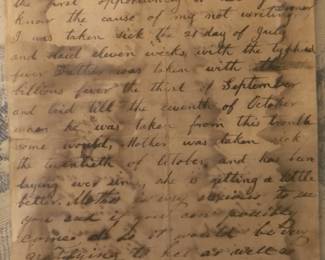 the first opportunity
know the cause of my not writing
I was taken sick the 21 day of July
and laid eleven weeks with the typhoid
fever Father was taken with the
billious fever the third of September
and laid till the eventh of October
when he was taken from this trouble
some would, Mother was taken sick
the twentieth of October and has been
laying ever since, she is getting a little
better. Mother is very anxious to see
you and if you can possibly
come do so it would be very
gratifying to her as well as